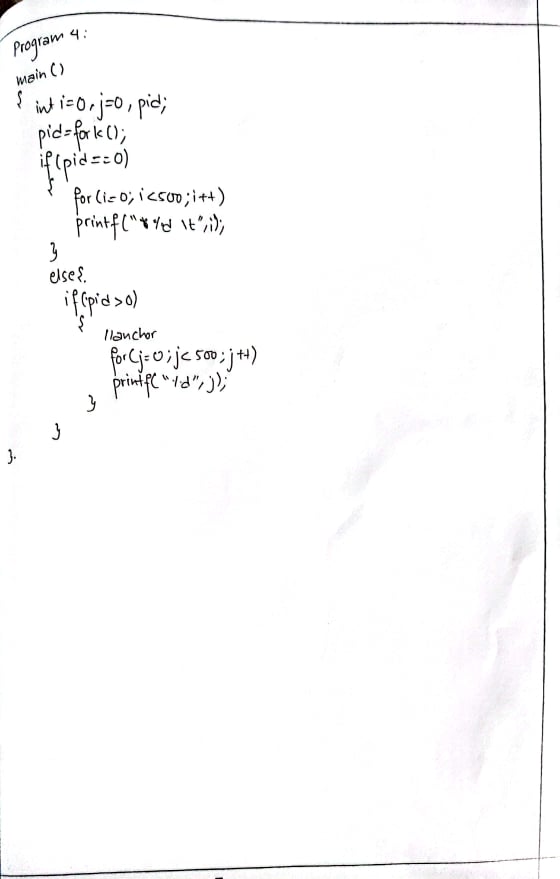 Program 4:
main ()
{ int i=0, j=0, pid;
pid=fork();
if(pid==0)
{
for(i=0; i<500; i++)
printf("%d \t",i);
}
else{
if(pid>0)
{
//anchor
for(j=0; j<500; j++)
printf("%d", j);
}
}
}.